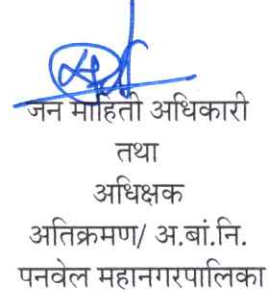 जन माहिती अधिकारी
तथा
अधिक्षक
अतिक्रमण/ अ.बां.नि.
पनवेल महानगरपालिका